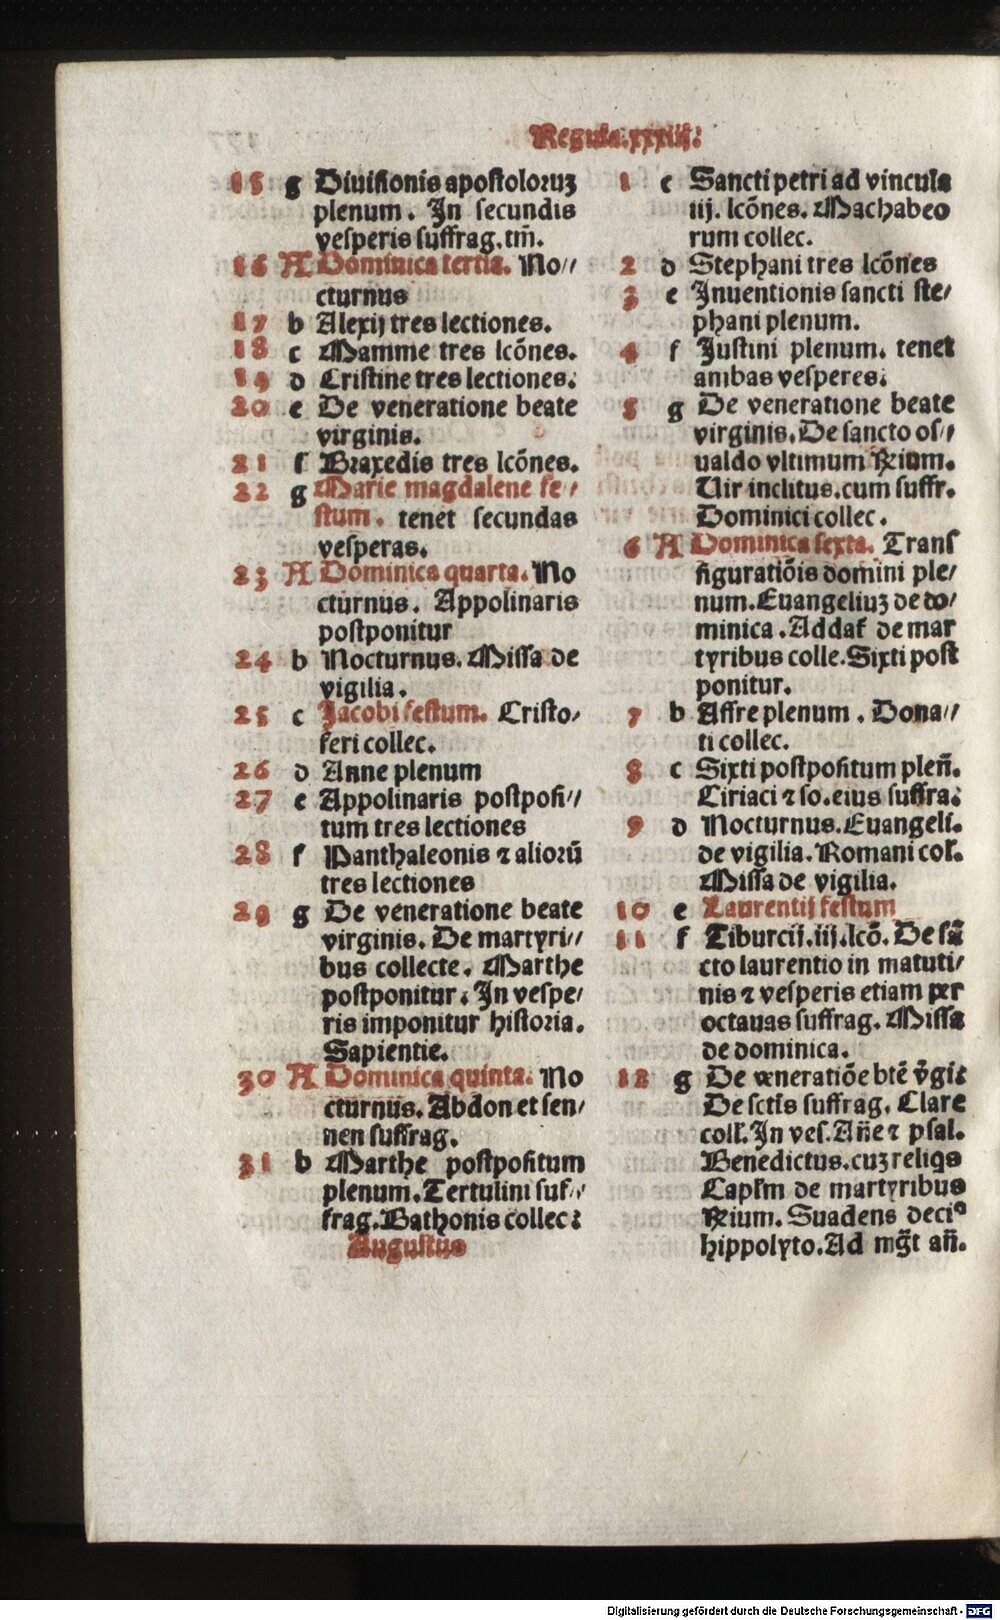 Regula.xxxiij:
15 g Diuisionis apostoloruꝫ
plenum. In secundis
vesperis suffrag. tm̄.
16 A Dominica tertia. No⸗
cturnus
17 b Alexij tres lectiones.
18 c Mamme tres lcōnes.
19 d Cristine tres lectiones.
20 e De veneratione beate
virginis.
21 f Braxedis tres lcōnes.
22 g Marie magdalene fe⸗
stum. tenet secundas
vesperas.
23 A Dominica quarta. No
cturnus. Appolinaris
postponitur
24 b Nocturnus. Missa de
vigilia.
25 c Jacobi festum. Cristo⸗
feri collec.
26 d Anne plenum
27 e Appolinaris postposi⸗
tum tres lectiones
28 f Panthaleonis ⁊ alioꝛū
tres lectiones
29 g De veneratione beate
virginis. De martyri⸗
bus collecte. Marthe
postponitur. In vespe⸗
ris imponitur histoꝛia.
Sapientie.
30 A Dominica quinta. No
cturnus. Abdon et sen⸗
nen suffrag.
31 b Marthe postpositum
plenum. Tertulini suf⸗
frag. Bathonis collec:
Augustus
1 c Sancti petri ad vincula
iij. lcōnes. Machabeo
rum collec.
2 d Stephani tres lcōnes
3 e Inuentionis sancti ste⸗
phani plenum.
4 f Justini plenum. tenet
ambas vesperes.
5 g De veneratione beate
virginis. De sancto os⸗
ualdo vltimum Rium.
Uir inclitus. cum suffr.
Dominici collec.
6 A Dominica sexta. Trans
figuratiōis domini ple⸗
num. Euangeliuꝫ de do⸗
minica. Addat̄ de mar
tyribus colle. Sixti post
ponitur.
7 b Affre plenum. Dona⸗
ti collec.
8 c Sixti postpositum plen̄.
Ciriaci ⁊ so. eius suffra.
9 d Nocturnus. Euangeli.
de vigilia. Romani col.
Missa de vigilia.
10 e Laurentij festum
11 f Tiburcij. iij. lcō. De sā
cto laurentio in matuti⸗
nis ⁊ vesperis etiam per
octauas suffrag. Missa
de dominica.
12 g De veneratiōe btē v̄gi:
De sctīs suffrag. Clare
coll. In ves. Añe ⁊ psal.
Benedictus. cuꝫ reliqs
Caplm de martyribus
Rium. Suadens deciꝰ
hippolyto. Ad mg̃t añ.
Digitalisierung gefördert durch die Deutsche Forschungsgemeinschaft - DFG